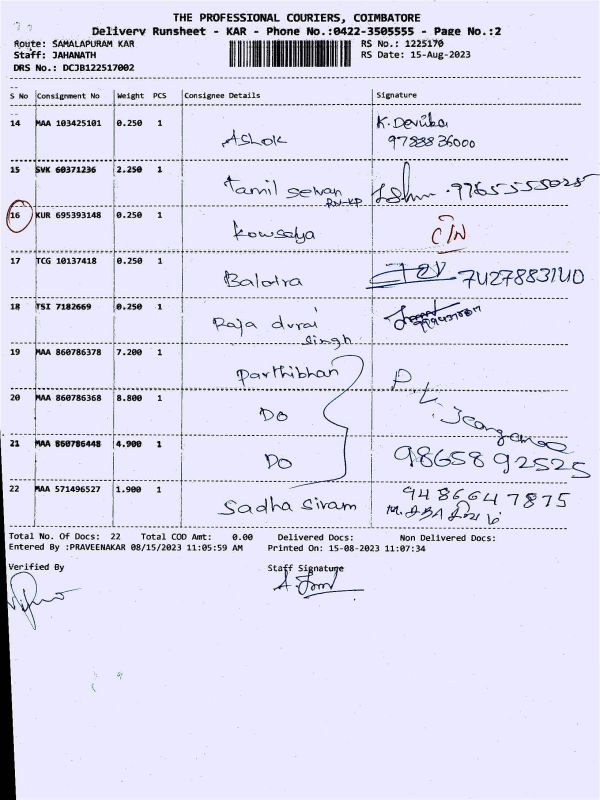 THE PROFESSIONAL COURIERS, COIMBATORE
Delivery Runsheet - KAR - Phone No.:0422-3505555 - Page No.:2
Route: SAMALAPURAM KAR RS No.: 1225170
Staff: JAHANATH RS Date: 15-Aug-2023
DRS No.: DCJB122517002
S No Consignment No Weight PCS Consignee Details Signature
14 MAA 103425101 0.250 1 Ashok K. Devika
9788836000
15 SVK 60371236 2.250 1 Tamil Selvan
16 KUR 695393148 0.250 1 Kowsalya
17 TCG 10137418 0.250 1 Balotra
18 TSI 7182669 0.250 1 Raja durai
Singh
19 MAA 860786378 7.200 1 Parthibhan
20 MAA 860786368 8.800 1 Do
21 MAA 860786448 4.900 1 Do 98658 92525
22 MAA 571496527 1.900 1 Sadha Sivam 9486647875
Total No. Of Docs: 22 Total COD Amt: 0.00 Delivered Docs: Non Delivered Docs:
Entered By :PRAVEENAKAR 08/15/2023 11:05:59 AM Printed On: 15-08-2023 11:07:34
Verified By Staff Signature